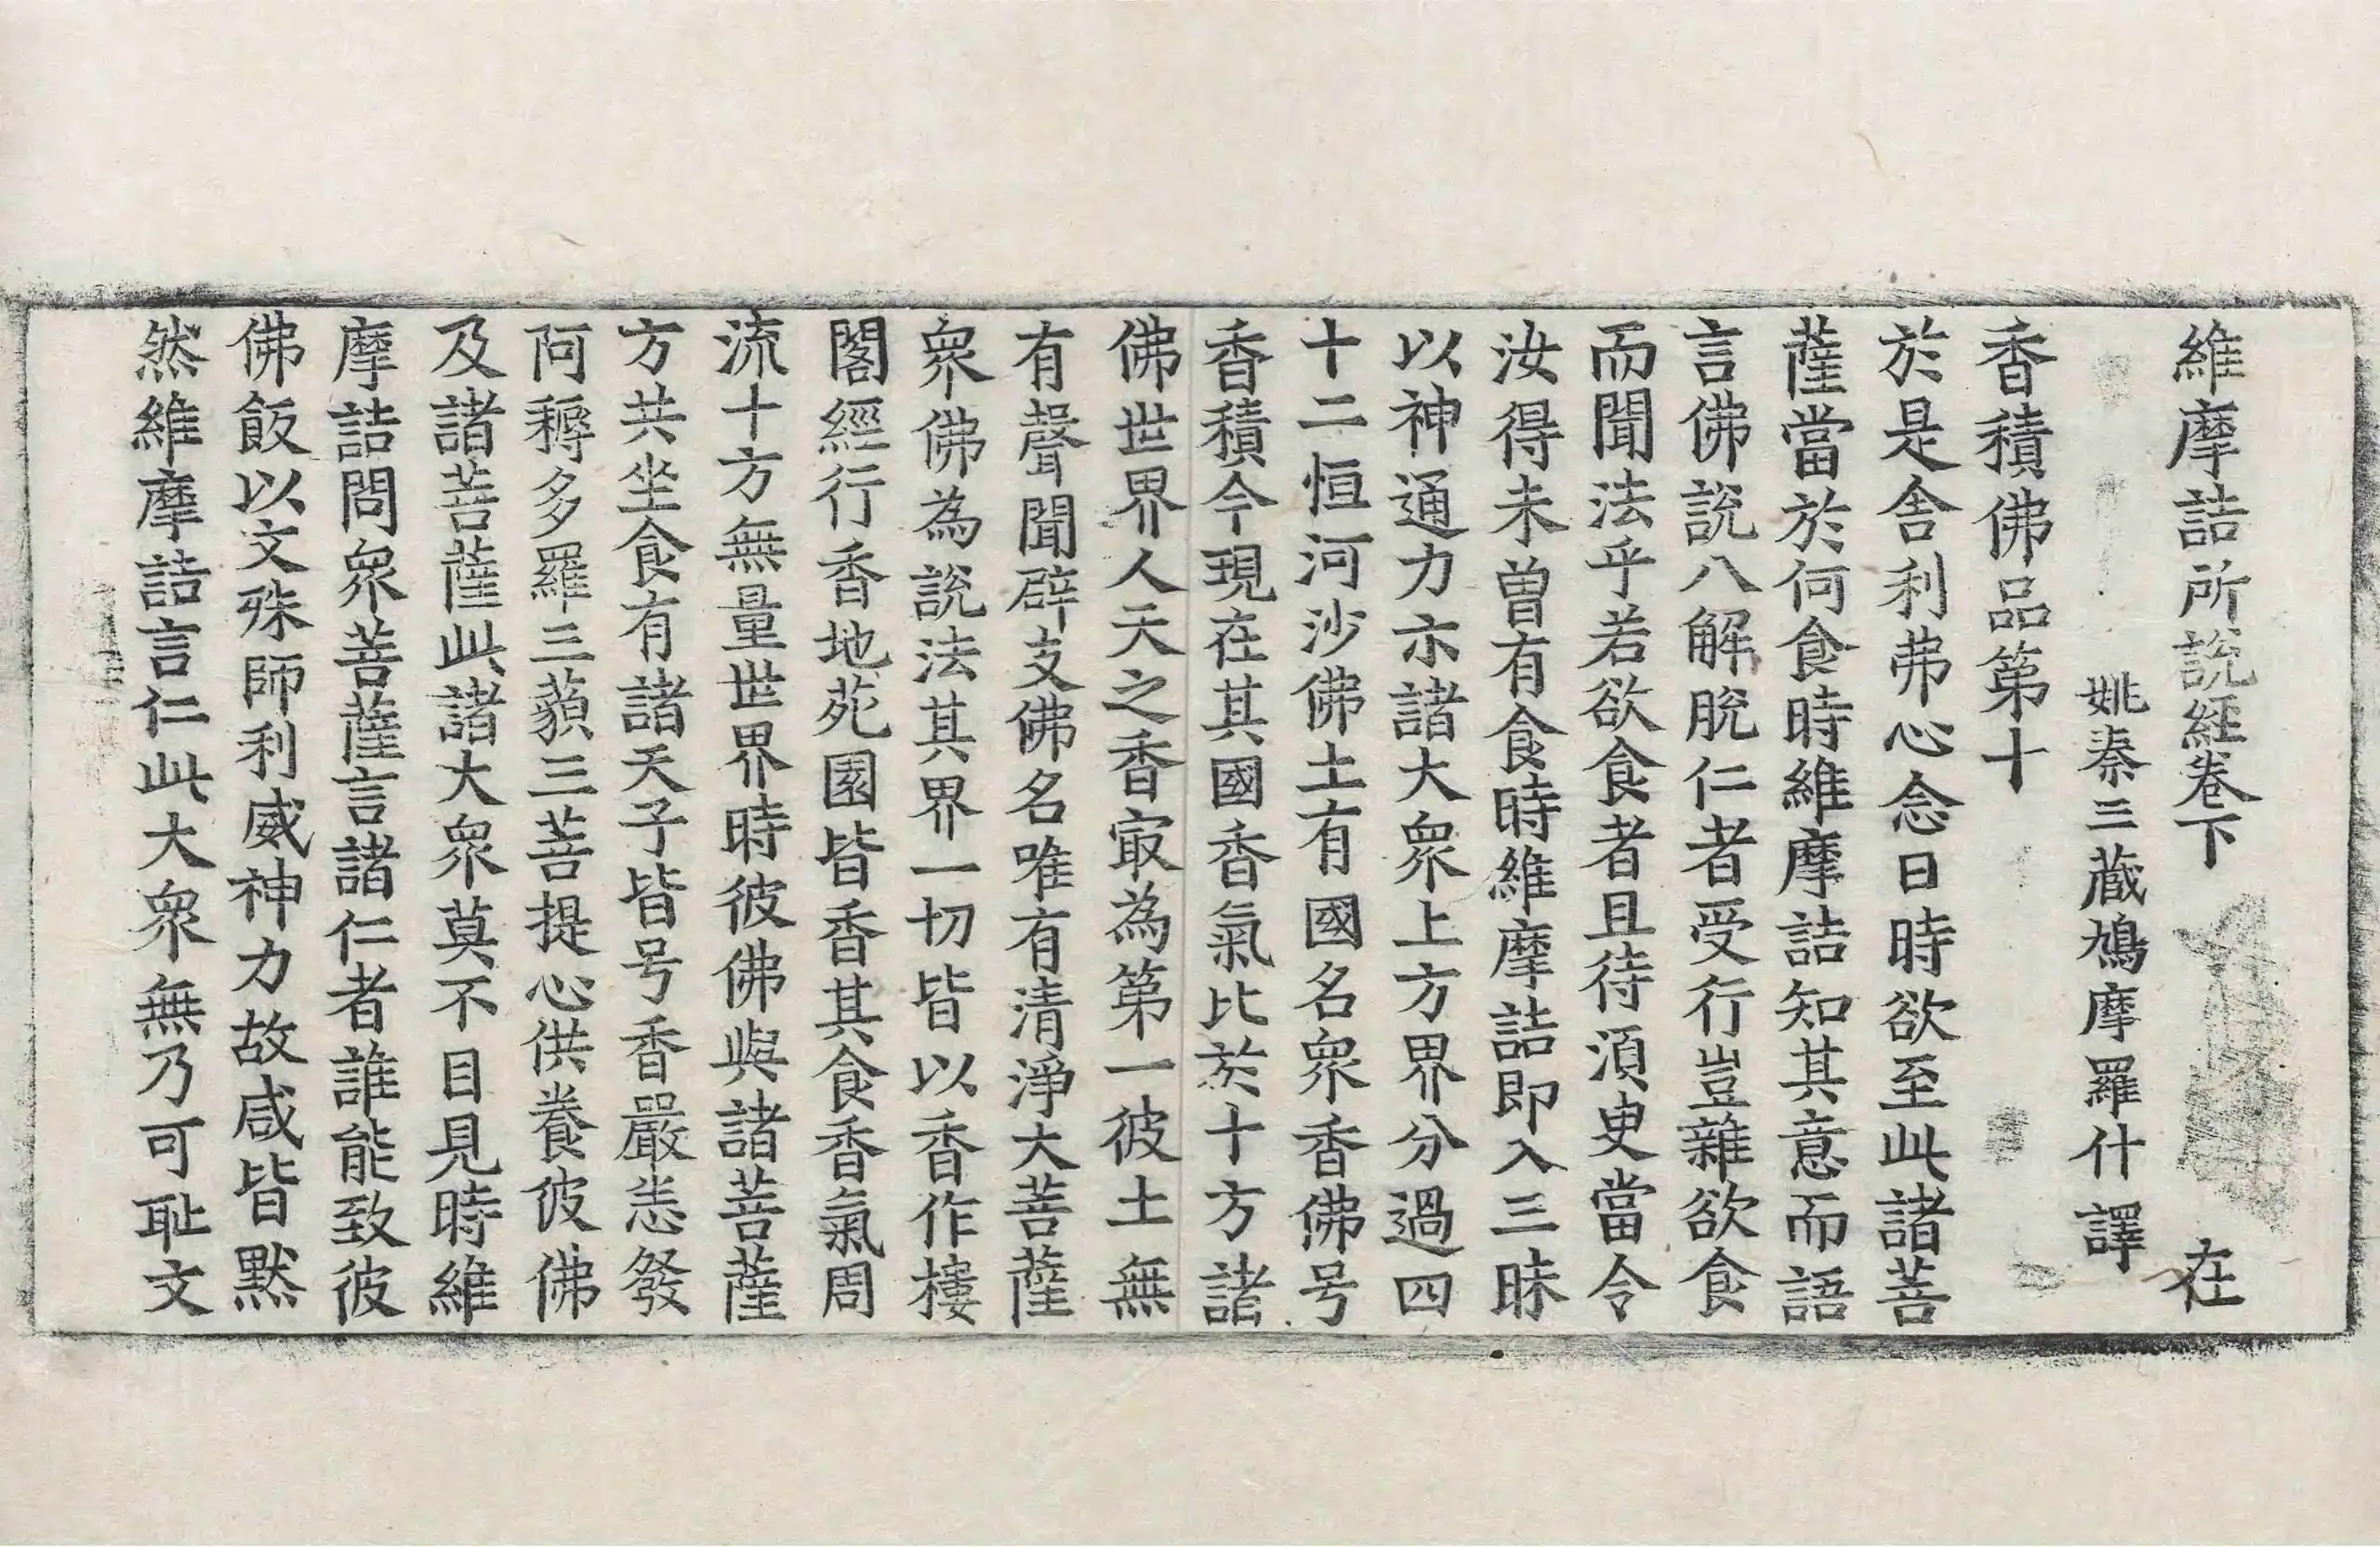 維摩詰所說經卷下 在
姚秦三蔵鳩摩羅什譯
香積佛品第十
於是舎利弗心念日時欲至此諸菩
薩當於何食時維摩詰知其意而語
言佛說八解脫仁者受行豈雜欲食
而聞法乎若欲食者且待湏臾當令
汝得未曽有食時維摩詰即入三昧
以神通力示諸大衆上方界分過四
十二恒河沙佛土有國名衆香佛号
香積今現在其國香氣比於十方諸
佛世界人天之香㝡為第一彼土無
有聲聞辟支佛名唯有清淨大菩薩
衆佛為說法其界一切皆以香作樓
閣經行香地苑園皆香其食香氣周
流十方無量世界時彼佛與諸菩薩
方共坐食有諸天子皆号香嚴悉發
阿耨多羅三藐三菩提心供養彼佛
及諸菩薩此諸大衆莫不目見時維
摩詰問衆菩薩言諸仁者誰能致彼
佛飯以文殊師利威神力故咸皆默
然維摩詰言仁此大衆無乃可耻文